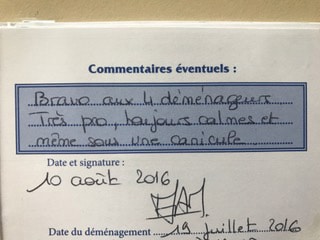 Commentaires éventuels :
Bravo aux 4 déménageurs
Très pro, toujours calmes et
même sous une canicule.
Date et signature :
10 août 2016
Date du déménagement 19 juillet 2016